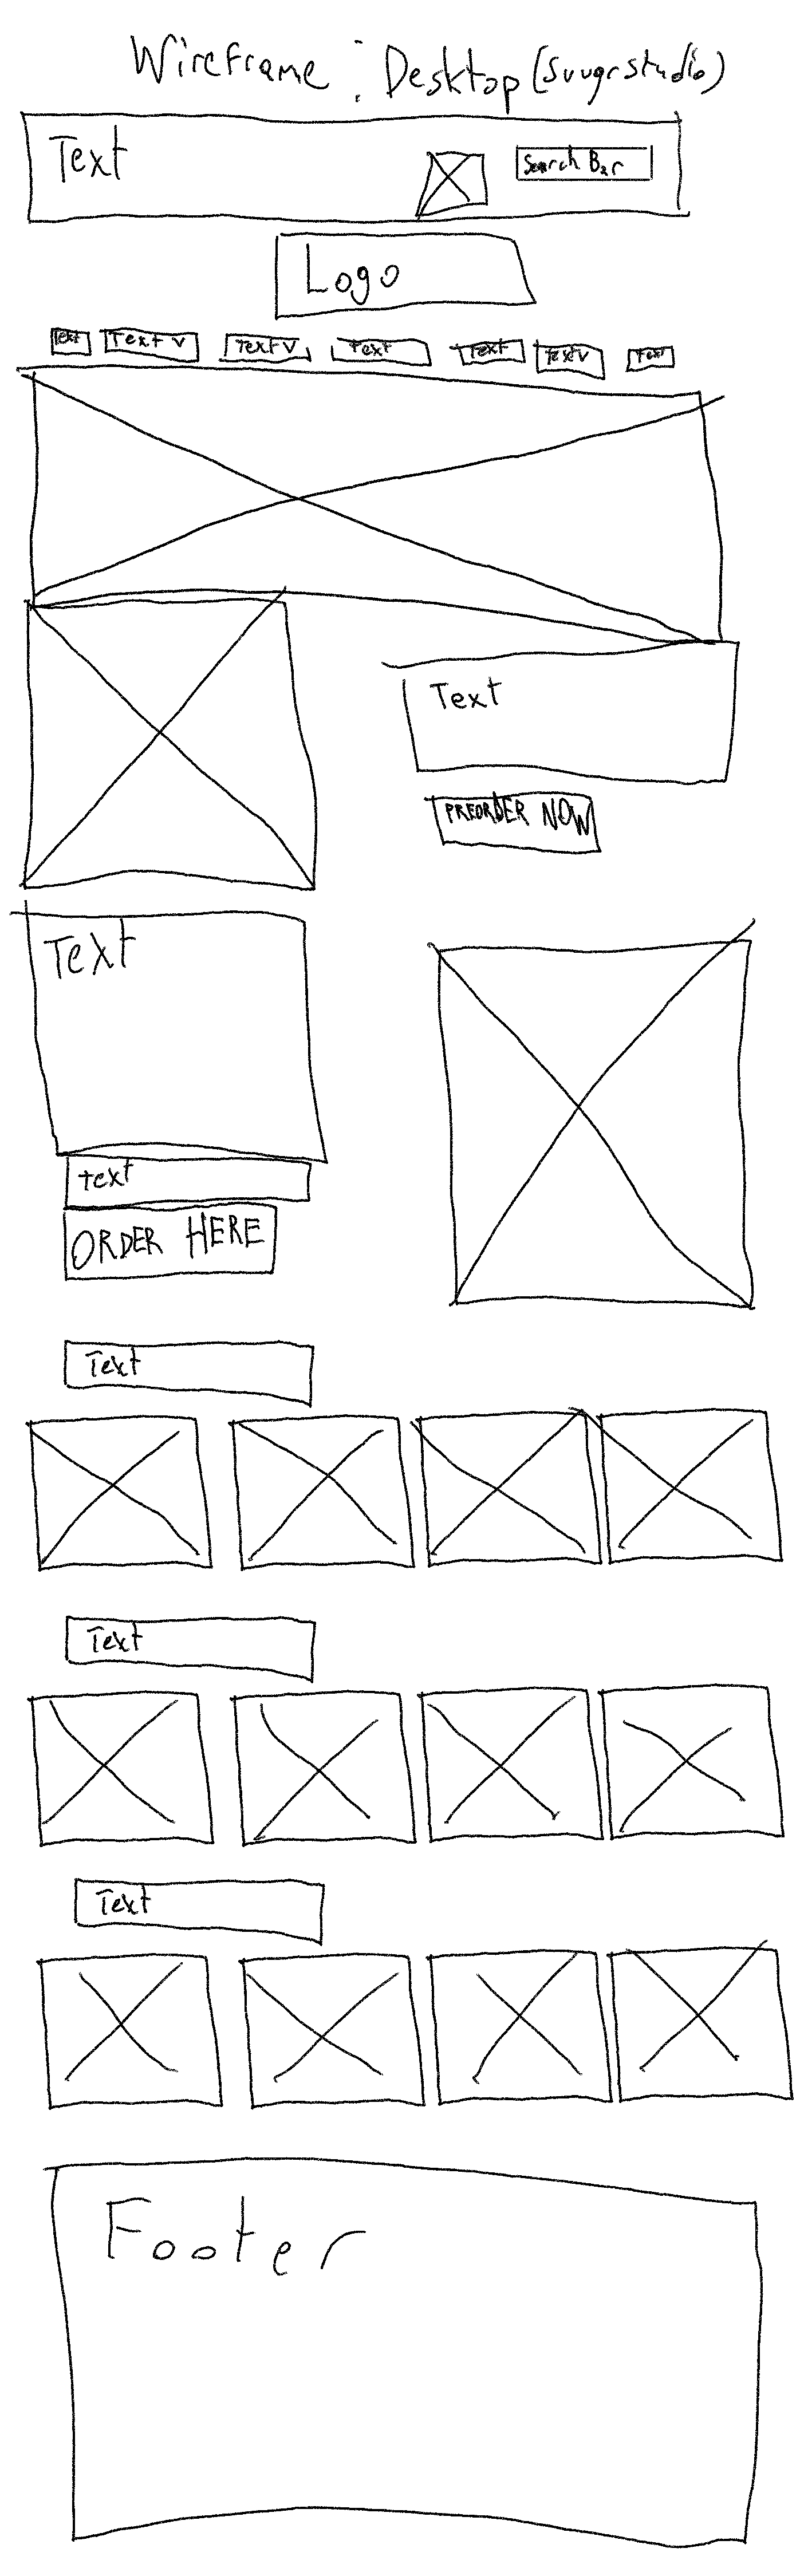 Wireframe : Desktop (suugrstudio)
Text Search Bar
Logo
Text Text v Text v Text Text Text v Text
Text
PREORDER NOW
Text
text
ORDER HERE
Text
Text
Text
Footer